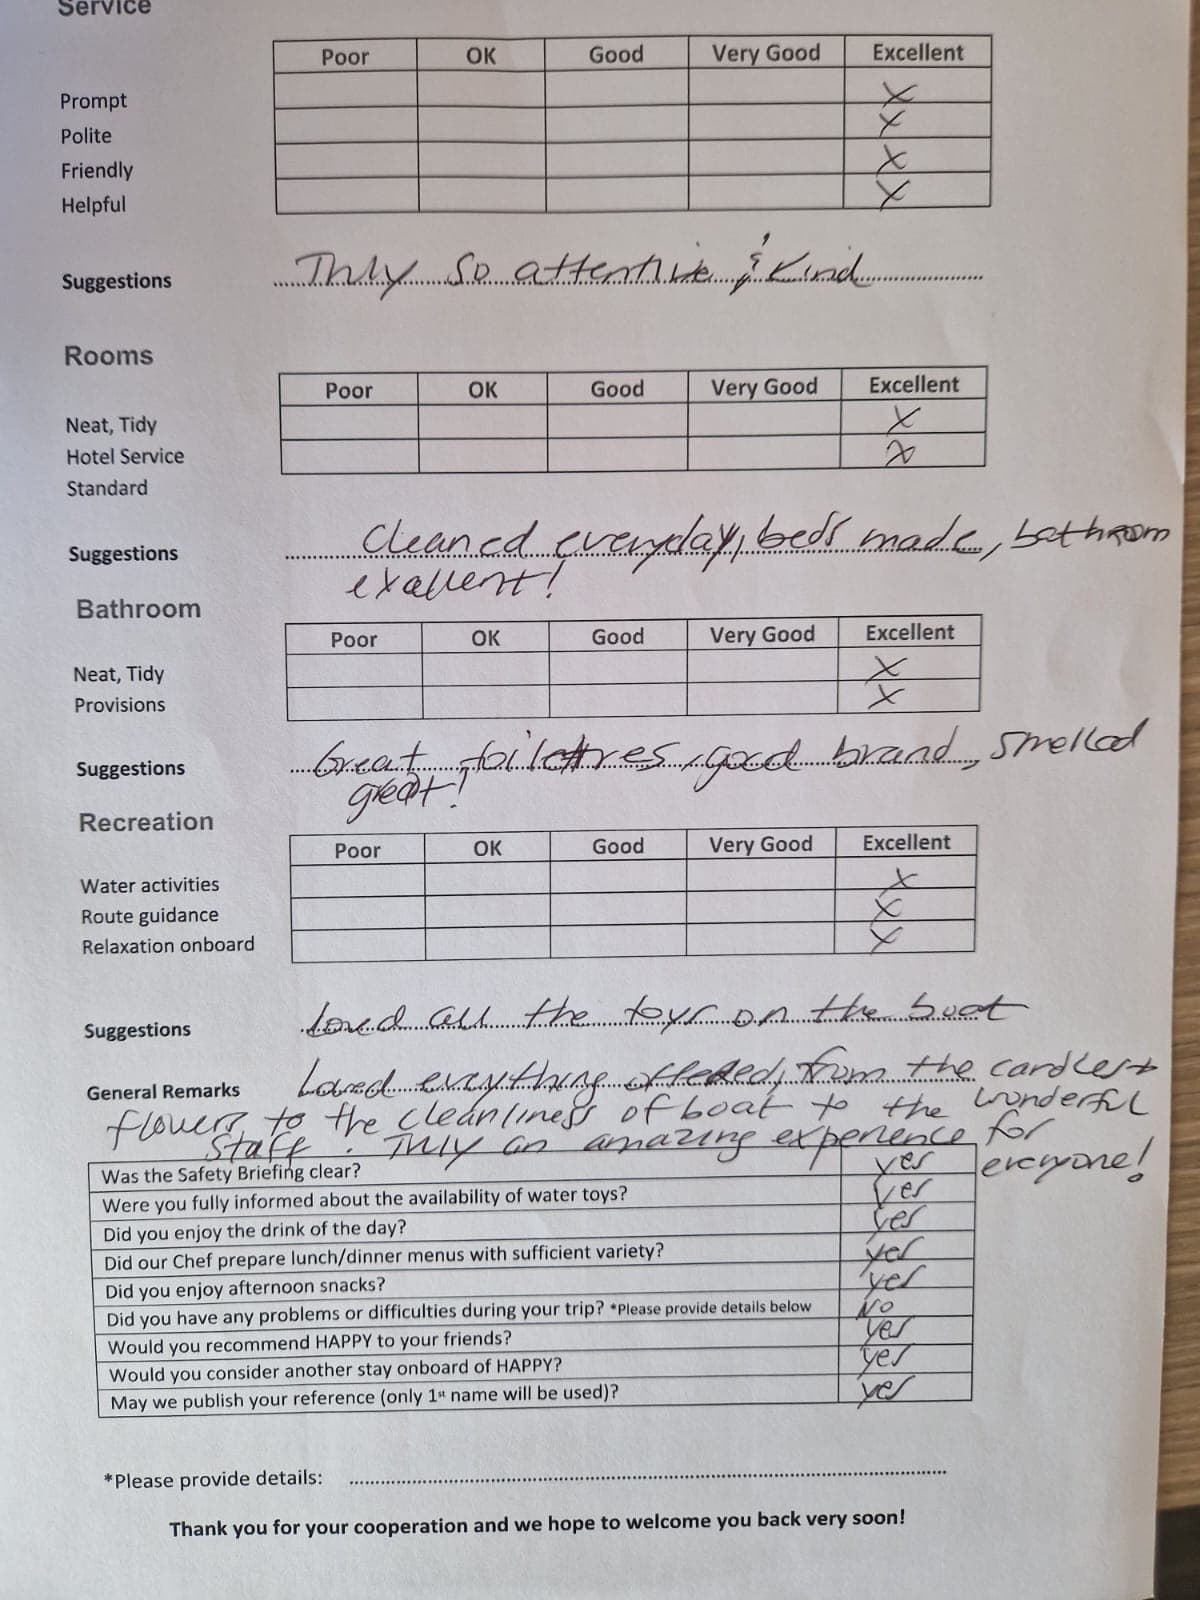 Service
Poor OK Good Very Good Excellent
Prompt X
Polite X
Friendly X
Helpful X
Suggestions Truly so attentive & kind
Rooms
Poor OK Good Very Good Excellent
Neat, Tidy X
Hotel Service X
Standard
Suggestions Cleaned everyday, beds made, bathroom
exallent!
Bathroom
Poor OK Good Very Good Excellent
Neat, Tidy X
Provisions X
Suggestions Great good brand, smelled
great!
Recreation
Poor OK Good Very Good Excellent
Water activities X
Route guidance X
Relaxation onboard X
Suggestions Loved all the toys on the boat
General Remarks Loved everything offered, from the
flowers to the cleanliness of boat to the wonderful
staff. Truly an amazing experience for
everyone!
Was the Safety Briefing clear? yes
Were you fully informed about the availability of water toys? yes
Did you enjoy the drink of the day? yes
Did our Chef prepare lunch/dinner menus with sufficient variety? yes
Did you enjoy afternoon snacks? yes
Did you have any problems or difficulties during your trip? *Please provide details below No
Would you recommend HAPPY to your friends? yes
Would you consider another stay onboard of HAPPY? yes
May we publish your reference (only 1st name will be used)? yes
*Please provide details:
Thank you for your cooperation and we hope to welcome you back very soon!